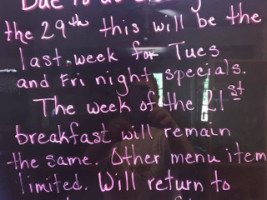 Due to
the 29th this will be the
last week for Tues
and Fri night specials.
The week of the 21st
breakfast will remain
the same. Other menu item
limited. Will return to